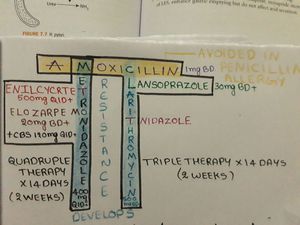 FIGURE 7.7 H. pylori.
AVOIDED IN
PENICILLIN
ALLERGY
AMOXICILLIN 1mg BD
METRONIDAZOLE 400 mg QID
RESISTANCE
DEVELOPS
CLARITHROMYCIN
LANSOPRAZOLE 30mg BD+
TINIDAZOLE
500mg QID+
20mg BD+
+CBS 120mg QID
QUADRUPLE
THERAPY
X14 DAYS
(2 WEEKS)
TRIPLE THERAPY X14 DAYS
(2 WEEKS)